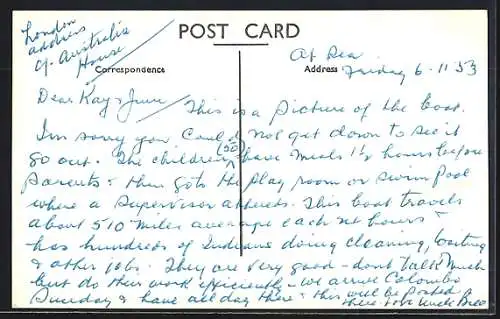 London
address
c/- Australia
House
POST CARD
Correspondence
Address
At Sea
Friday 6-11-53
Dear Kay & June
This is a picture of the boat.
I'm sorry you could not get down to see it
go out. The children (50) have meals 1½ hours before
parents & then go to the play room or swim pool
where a supervisor attends. This boat travels
about 510 miles average each 24 hours &
has hundreds of Indians doing cleaning, waiting
& other jobs. They are very good - dont talk much
but do their work efficiently - we arrive Colombo
Sunday & have all day there & this will be posted
there. love Uncle